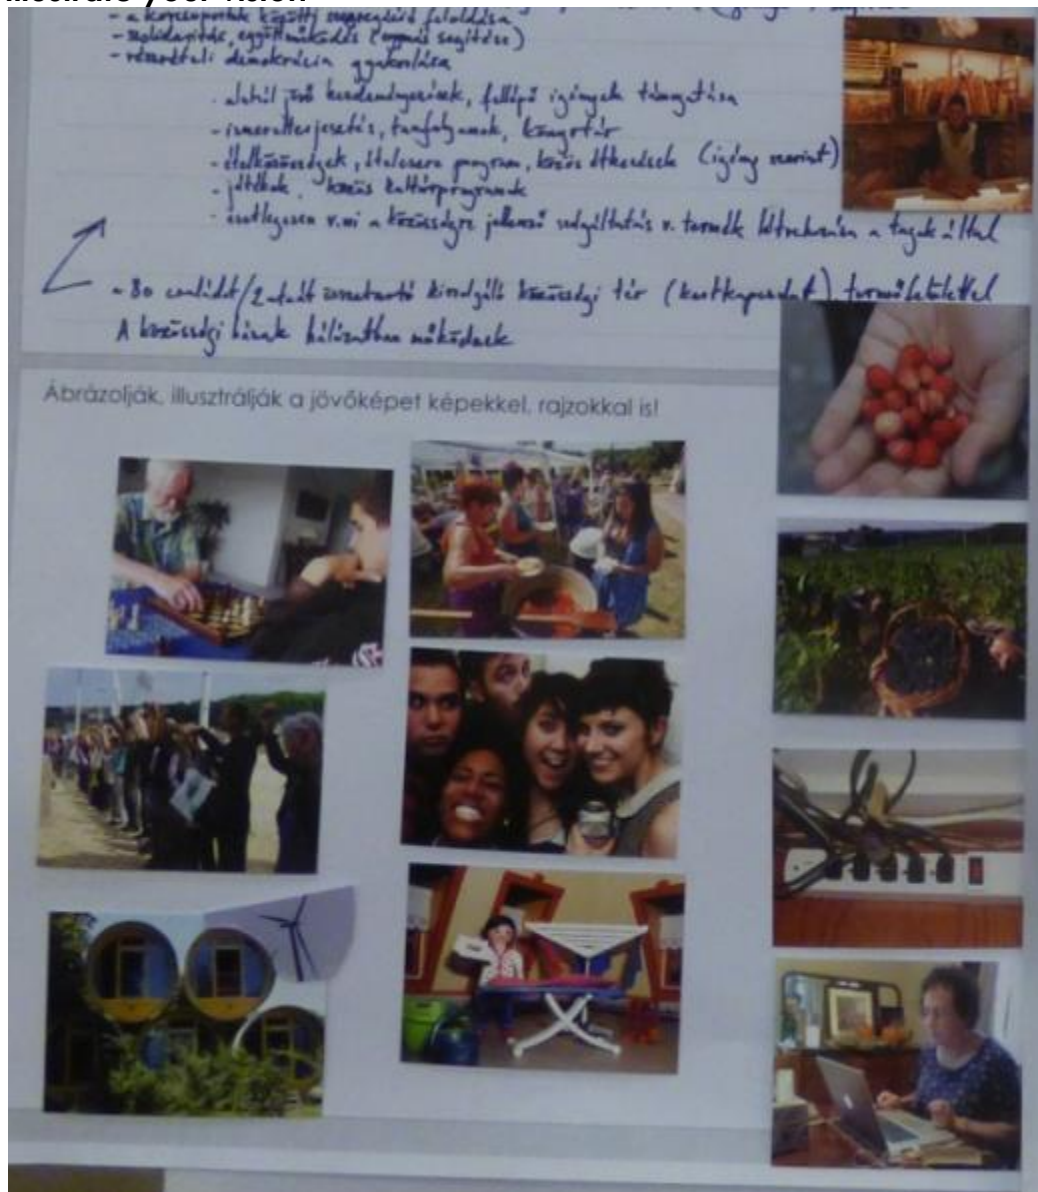 - a korcsoportok közötti szegregáció feloldása
- szolidaritás, együttműködés (egymás segítése)
- részvételi demokrácia gyakorlása
- alulról jövő kezdeményezések, fellépő igények támogatása
- ismeretterjesztés, tanfolyamok, könyvtár
- ételközösségek, ételcsere program, közös étkezések (igény szerint)
- játékok, közös kultúrprogramok
- esetlegesen v.mi a közösségre jellemző szolgáltatás v. termék létrehozása a tagok által
- 80 családot/2 utcát összetartó kiszolgáló közösségi tér (kertkapcsolat) termőfelülettel
A közösségi házak hálózatban működnek
Ábrázolják, illusztrálják a jövőképet képekkel, rajzokkal is!